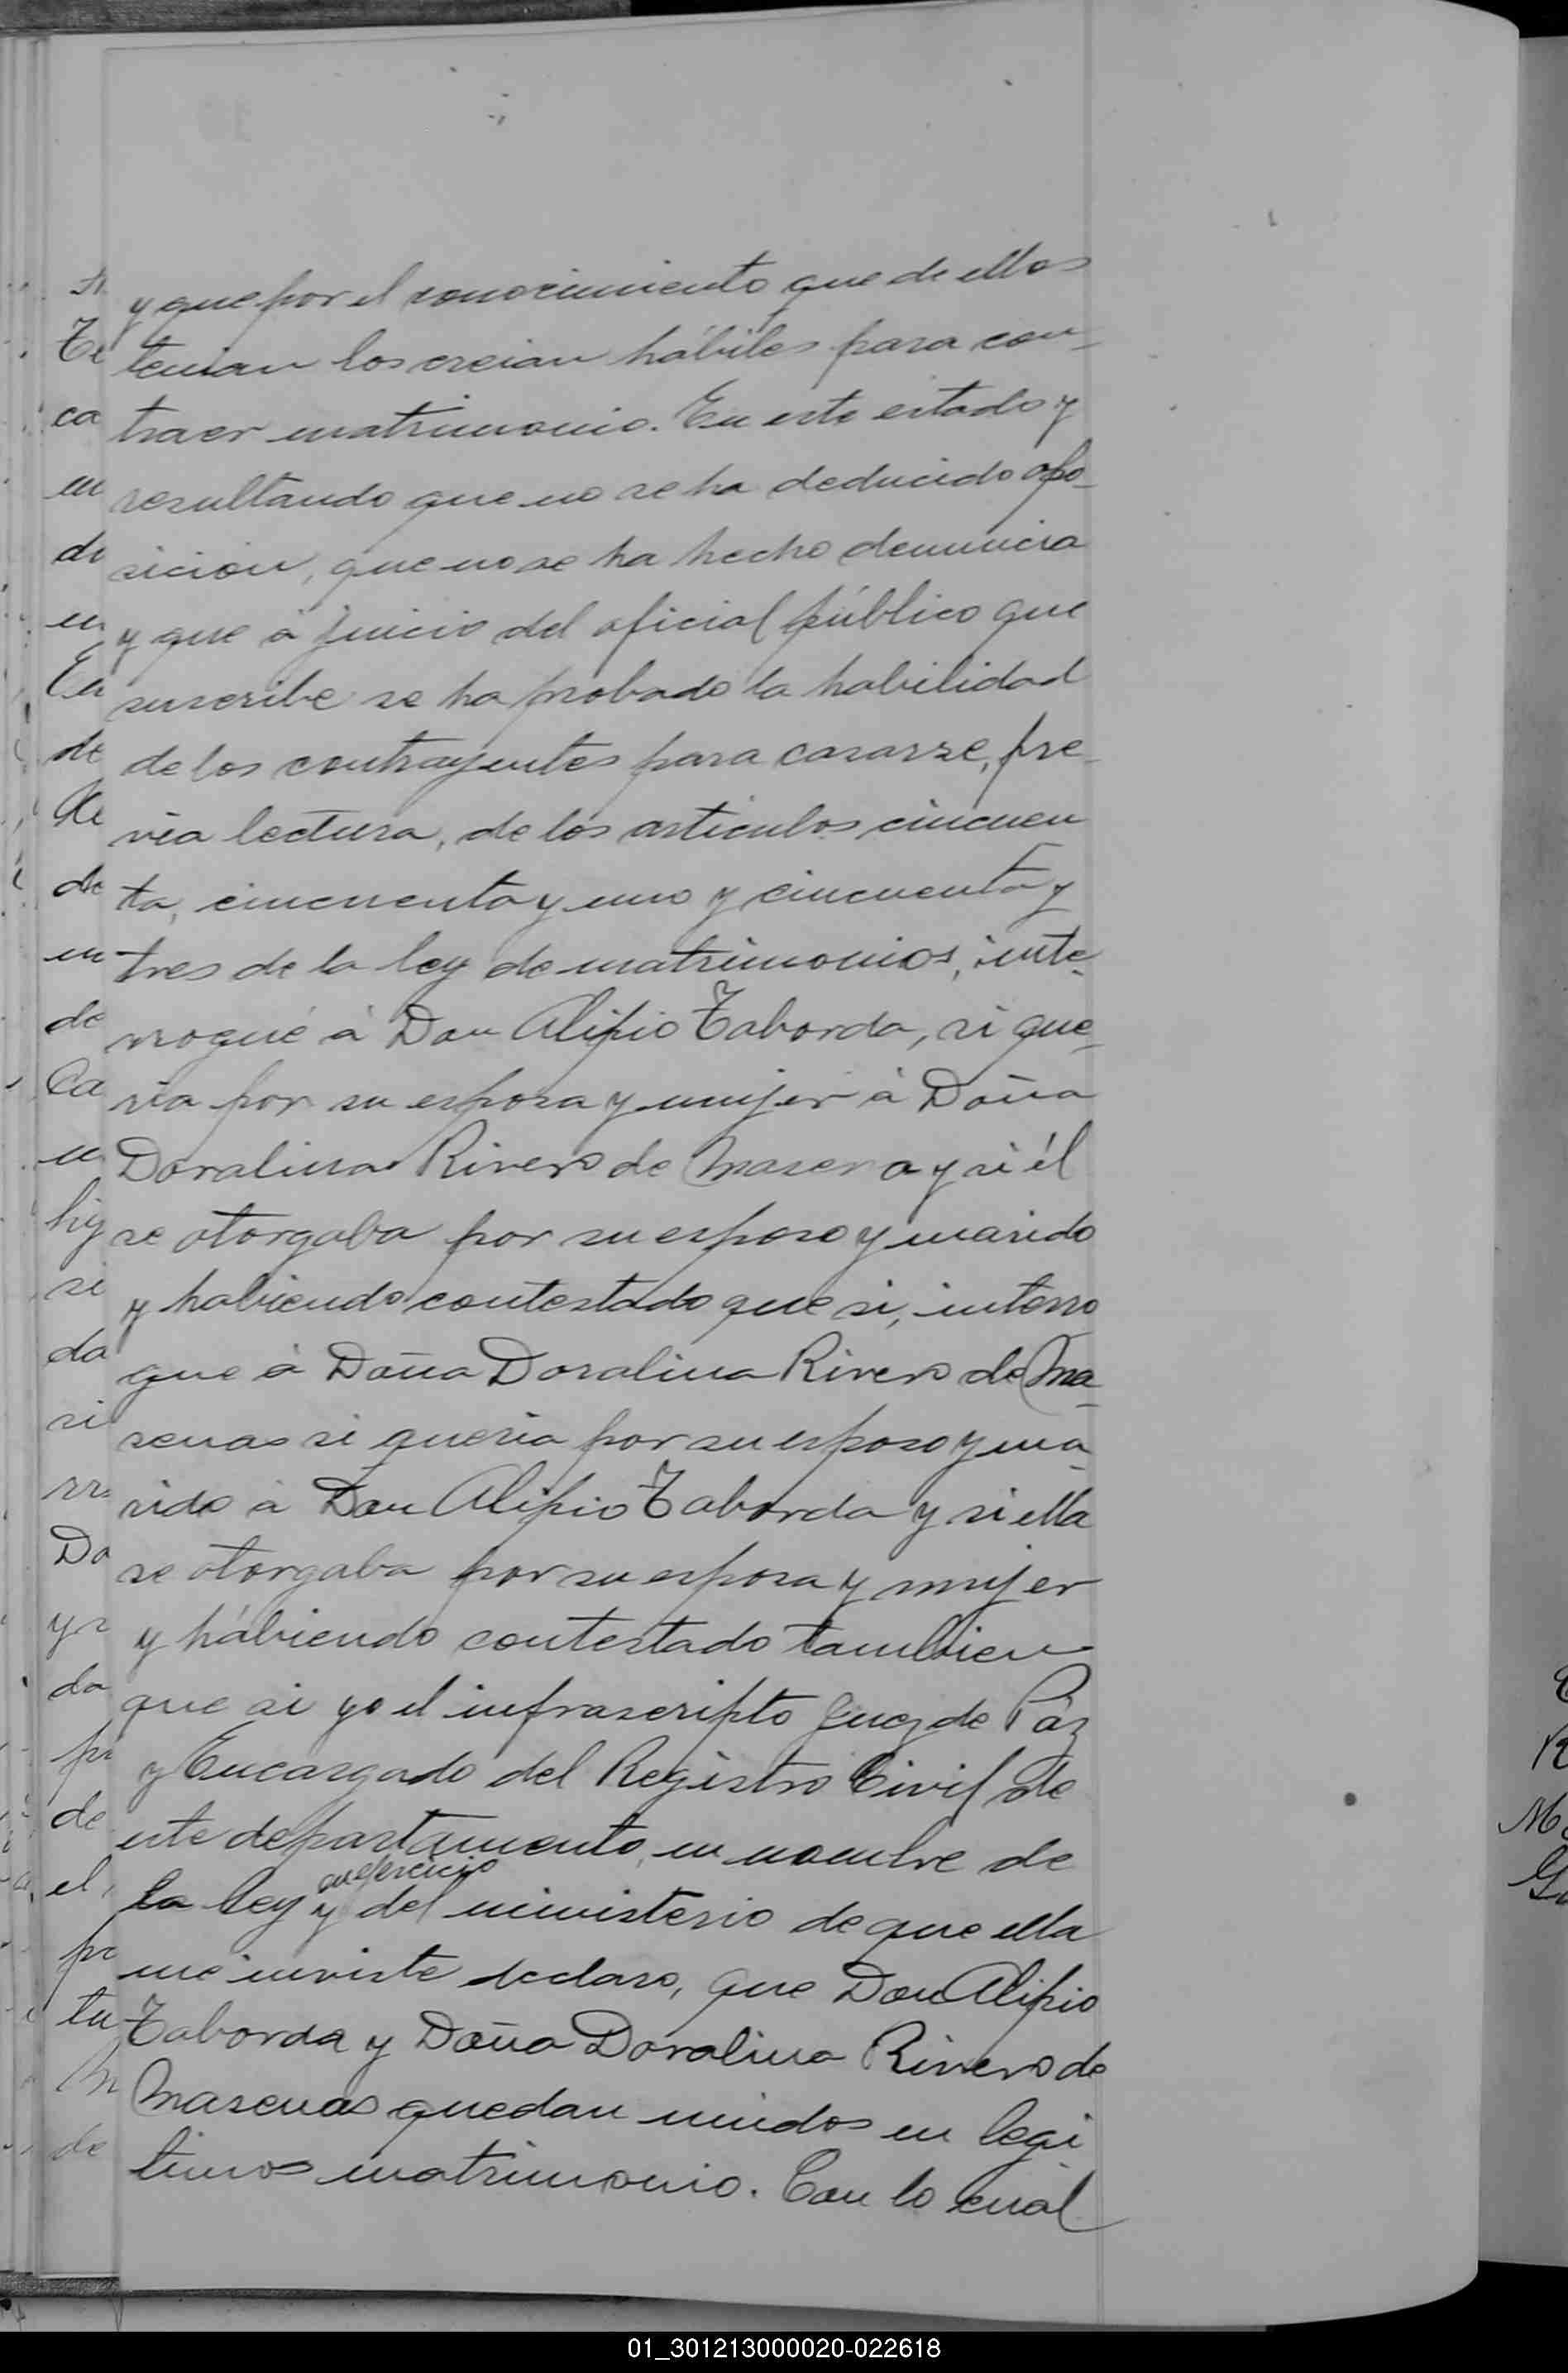 y que por el conocimiento que de ellos
tenian los creian hábiles para con-
traer matrimonio. En este estado y
resultando que no se ha deducido opo-
sicion, que no se ha hecho denuncia
y que á juicio del oficial público que
suscribe se ha probado la habilidad
de los contrayentes para casarse, pre-
via lectura, de los articulos cincuen
ta, cincuenta y uno y cincuenta y
tres de la ley de matrimonios, inte-
rrogué á Don Alipio Taborda, si que-
ria por su esposa y mujer á Doña
Doralina Rivero de y si él
se otorgaba por su esposo y marido
y habiendo contestado que si, interro
gue á Doña Doralina Rivero de Ma-
senas si queria por su esposo y ma-
rido á Don Alipio Taborda y si ella
se otorgaba por su esposa y mujer
y hábiendo contestado tambien
que si yo el infrascripto Juez de Páz
y Encargado del Registro Civil de
este departamento, en nombre de
en ejercicio
la ley y del ministerio de que ella
me inviste declaro, que Don Alipio
Taborda y Doña Doralina Rivero de
Masenas quedan unidos en legi
timos matrimonio. Con lo cual
Te
ca
en
di
en
En
de
de
en
de
Ca
en
hij
si
da
si
Do
y s
da
pr
de
el
tu
de
01_301213000020-022618